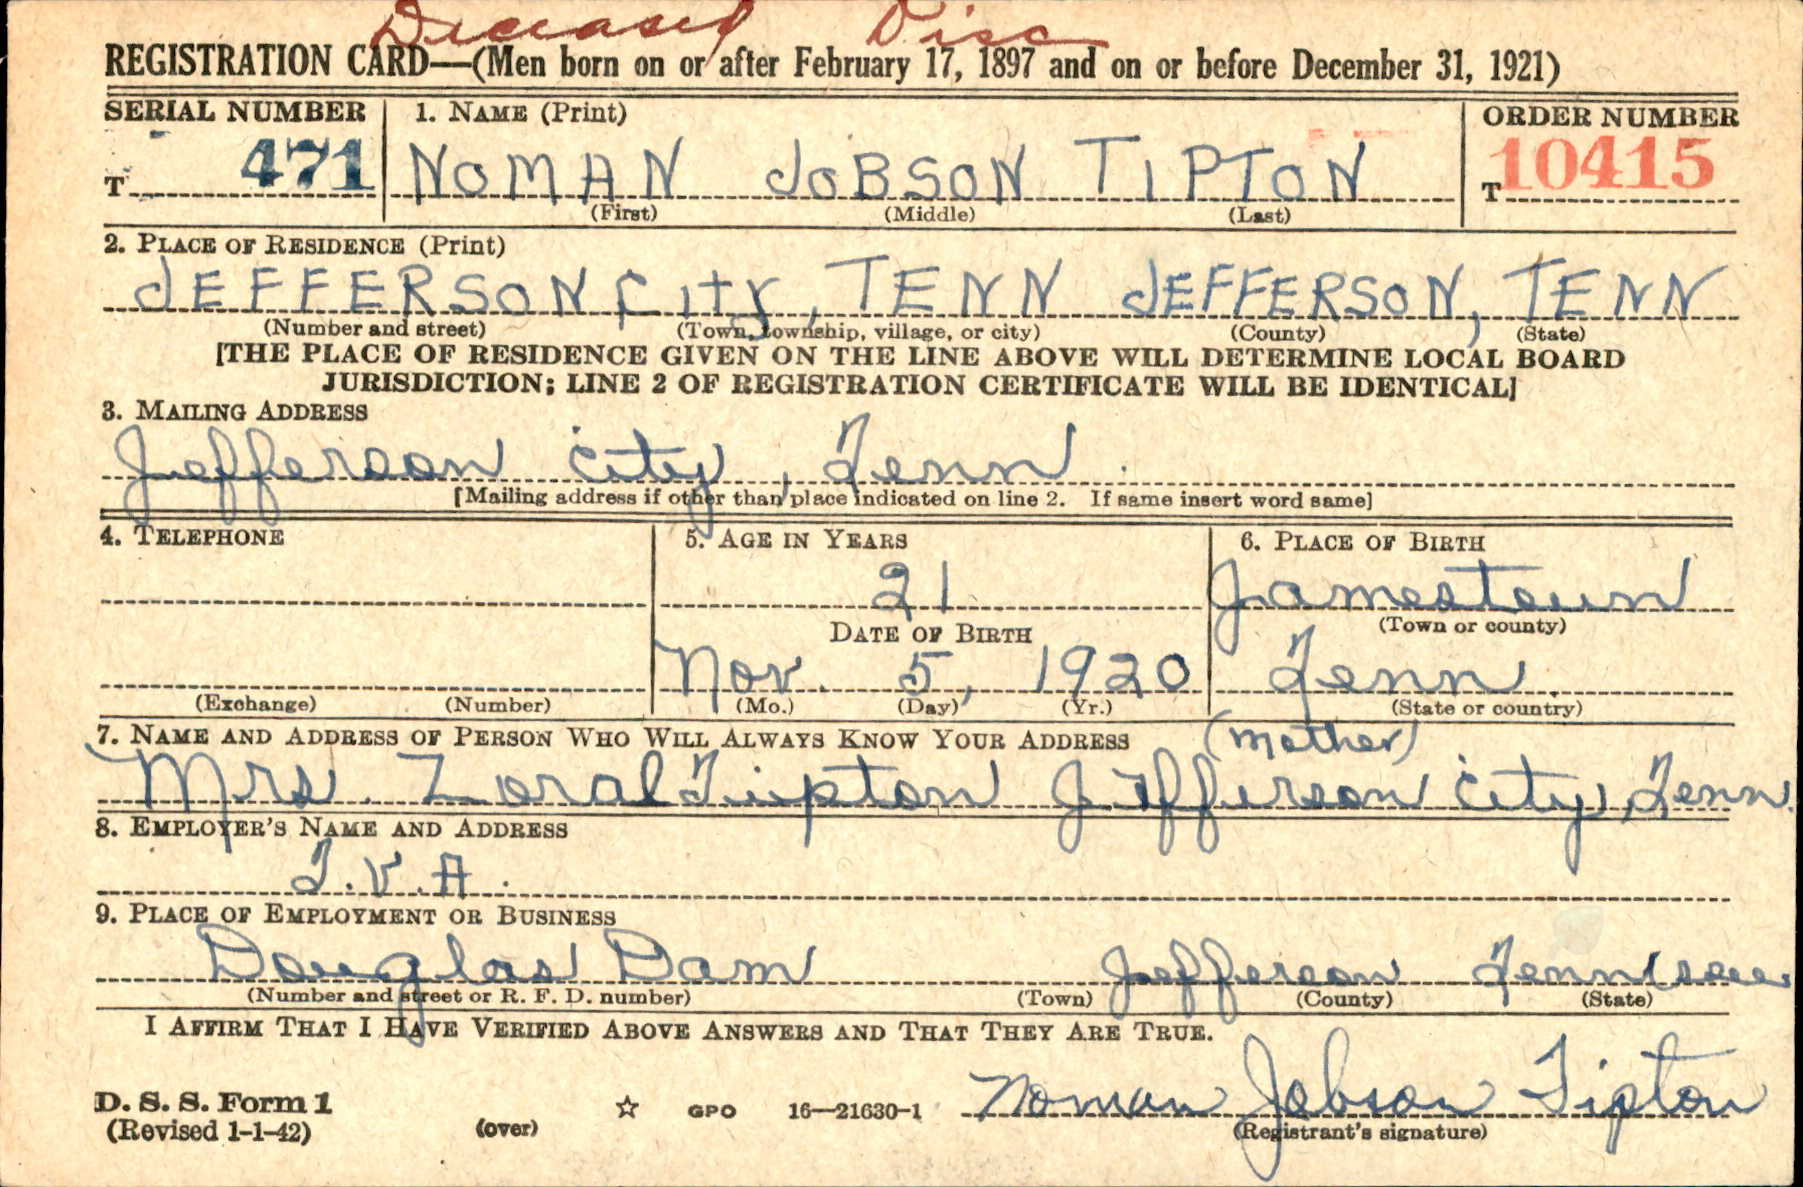 Deceased Disc
REGISTRATION CARD—(Men born on or after February 17, 1897 and on or before December 31, 1921)
SERIAL NUMBER 1. NAME (Print) ORDER NUMBER
T 471 NOMAN JOBSON TIPTON T 10415
(First) (Middle) (Last)
2. PLACE OF RESIDENCE (Print)
JEFFERSON City, TENN JEFFERSON, TENN
(Number and street) (Town, township, village, or city) (County) (State)
[THE PLACE OF RESIDENCE GIVEN ON THE LINE ABOVE WILL DETERMINE LOCAL BOARD
JURISDICTION; LINE 2 OF REGISTRATION CERTIFICATE WILL BE IDENTICAL]
3. MAILING ADDRESS
Jefferson City, Tenn.
[Mailing address if other than place indicated on line 2. If same insert word same]
4. TELEPHONE 5. AGE IN YEARS 6. PLACE OF BIRTH
21 Jamestown
DATE OF BIRTH (Town or county)
Nov. 5, 1920 Tenn.
(Exchange) (Number) (Mo.) (Day) (Yr.) (State or country)
7. NAME AND ADDRESS OF PERSON WHO WILL ALWAYS KNOW YOUR ADDRESS (Mother)
Mrs. Zoral Tipton Jefferson City, Tenn.
8. EMPLOYER'S NAME AND ADDRESS
T.V.A.
9. PLACE OF EMPLOYMENT OR BUSINESS
Douglas Dam Jefferson Tennessee
(Number and street or R. F. D. number) (Town) (County) (State)
I AFFIRM THAT I HAVE VERIFIED ABOVE ANSWERS AND THAT THEY ARE TRUE.
D. S. S. Form 1
(Revised 1-1-42) (over) ☆ GPO 16—21630-1 Noman Jobson Tipton
(Registrant's signature)